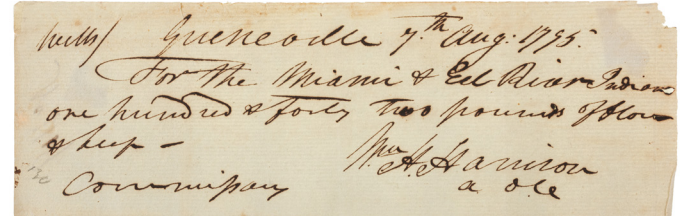 Wells) Greneville 7.th Aug: 1795.
For the Miami & Eel River Indians
one hundred & forty two pounds of flour
& beef —
Wm H. Harrison
Commissary a d c